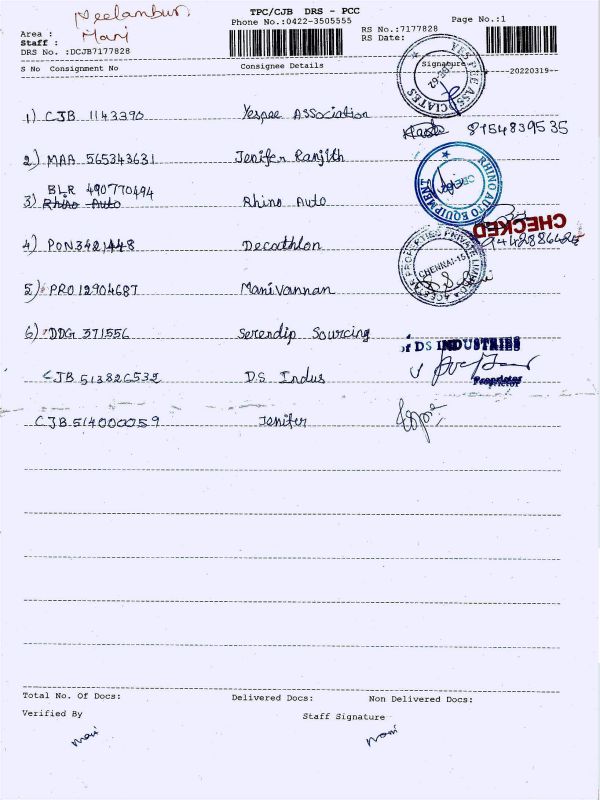 Neelambur
TPC/CJB DRS - PCC
Phone No.:0422-3505555
Page No.:1
Area :
Mani
RS No.:7177828
Staff :
RS Date:
DRS No. :DCJB7177828
S No Consignment No
Consignee Details
Signature
20220319
YESPEE ASSOCIATES
1) CJB 1143390 Yespee Association
8154839535
2) MAA 565343631 Jenifer Ranjith
RHINO AUTO EQUIPMENT
BLR 490770494
3) Rhino Auto Rhino Auto
CHECKED
4) PON3421448 Decathlon
PROPERTIES PRIVATE LIMITED
CHENNAI-15
5) PRO12904687 Manivannan
6) DDG 371556 Serendip Sourcing
of DS INDUSTRIES
CJB 51382C532 D.S Indus
Proprietor
CJB 514000059 Jenifer
Total No. Of Docs:
Delivered Docs:
Non Delivered Docs:
Verified By
Staff Signature
Mani
Mani